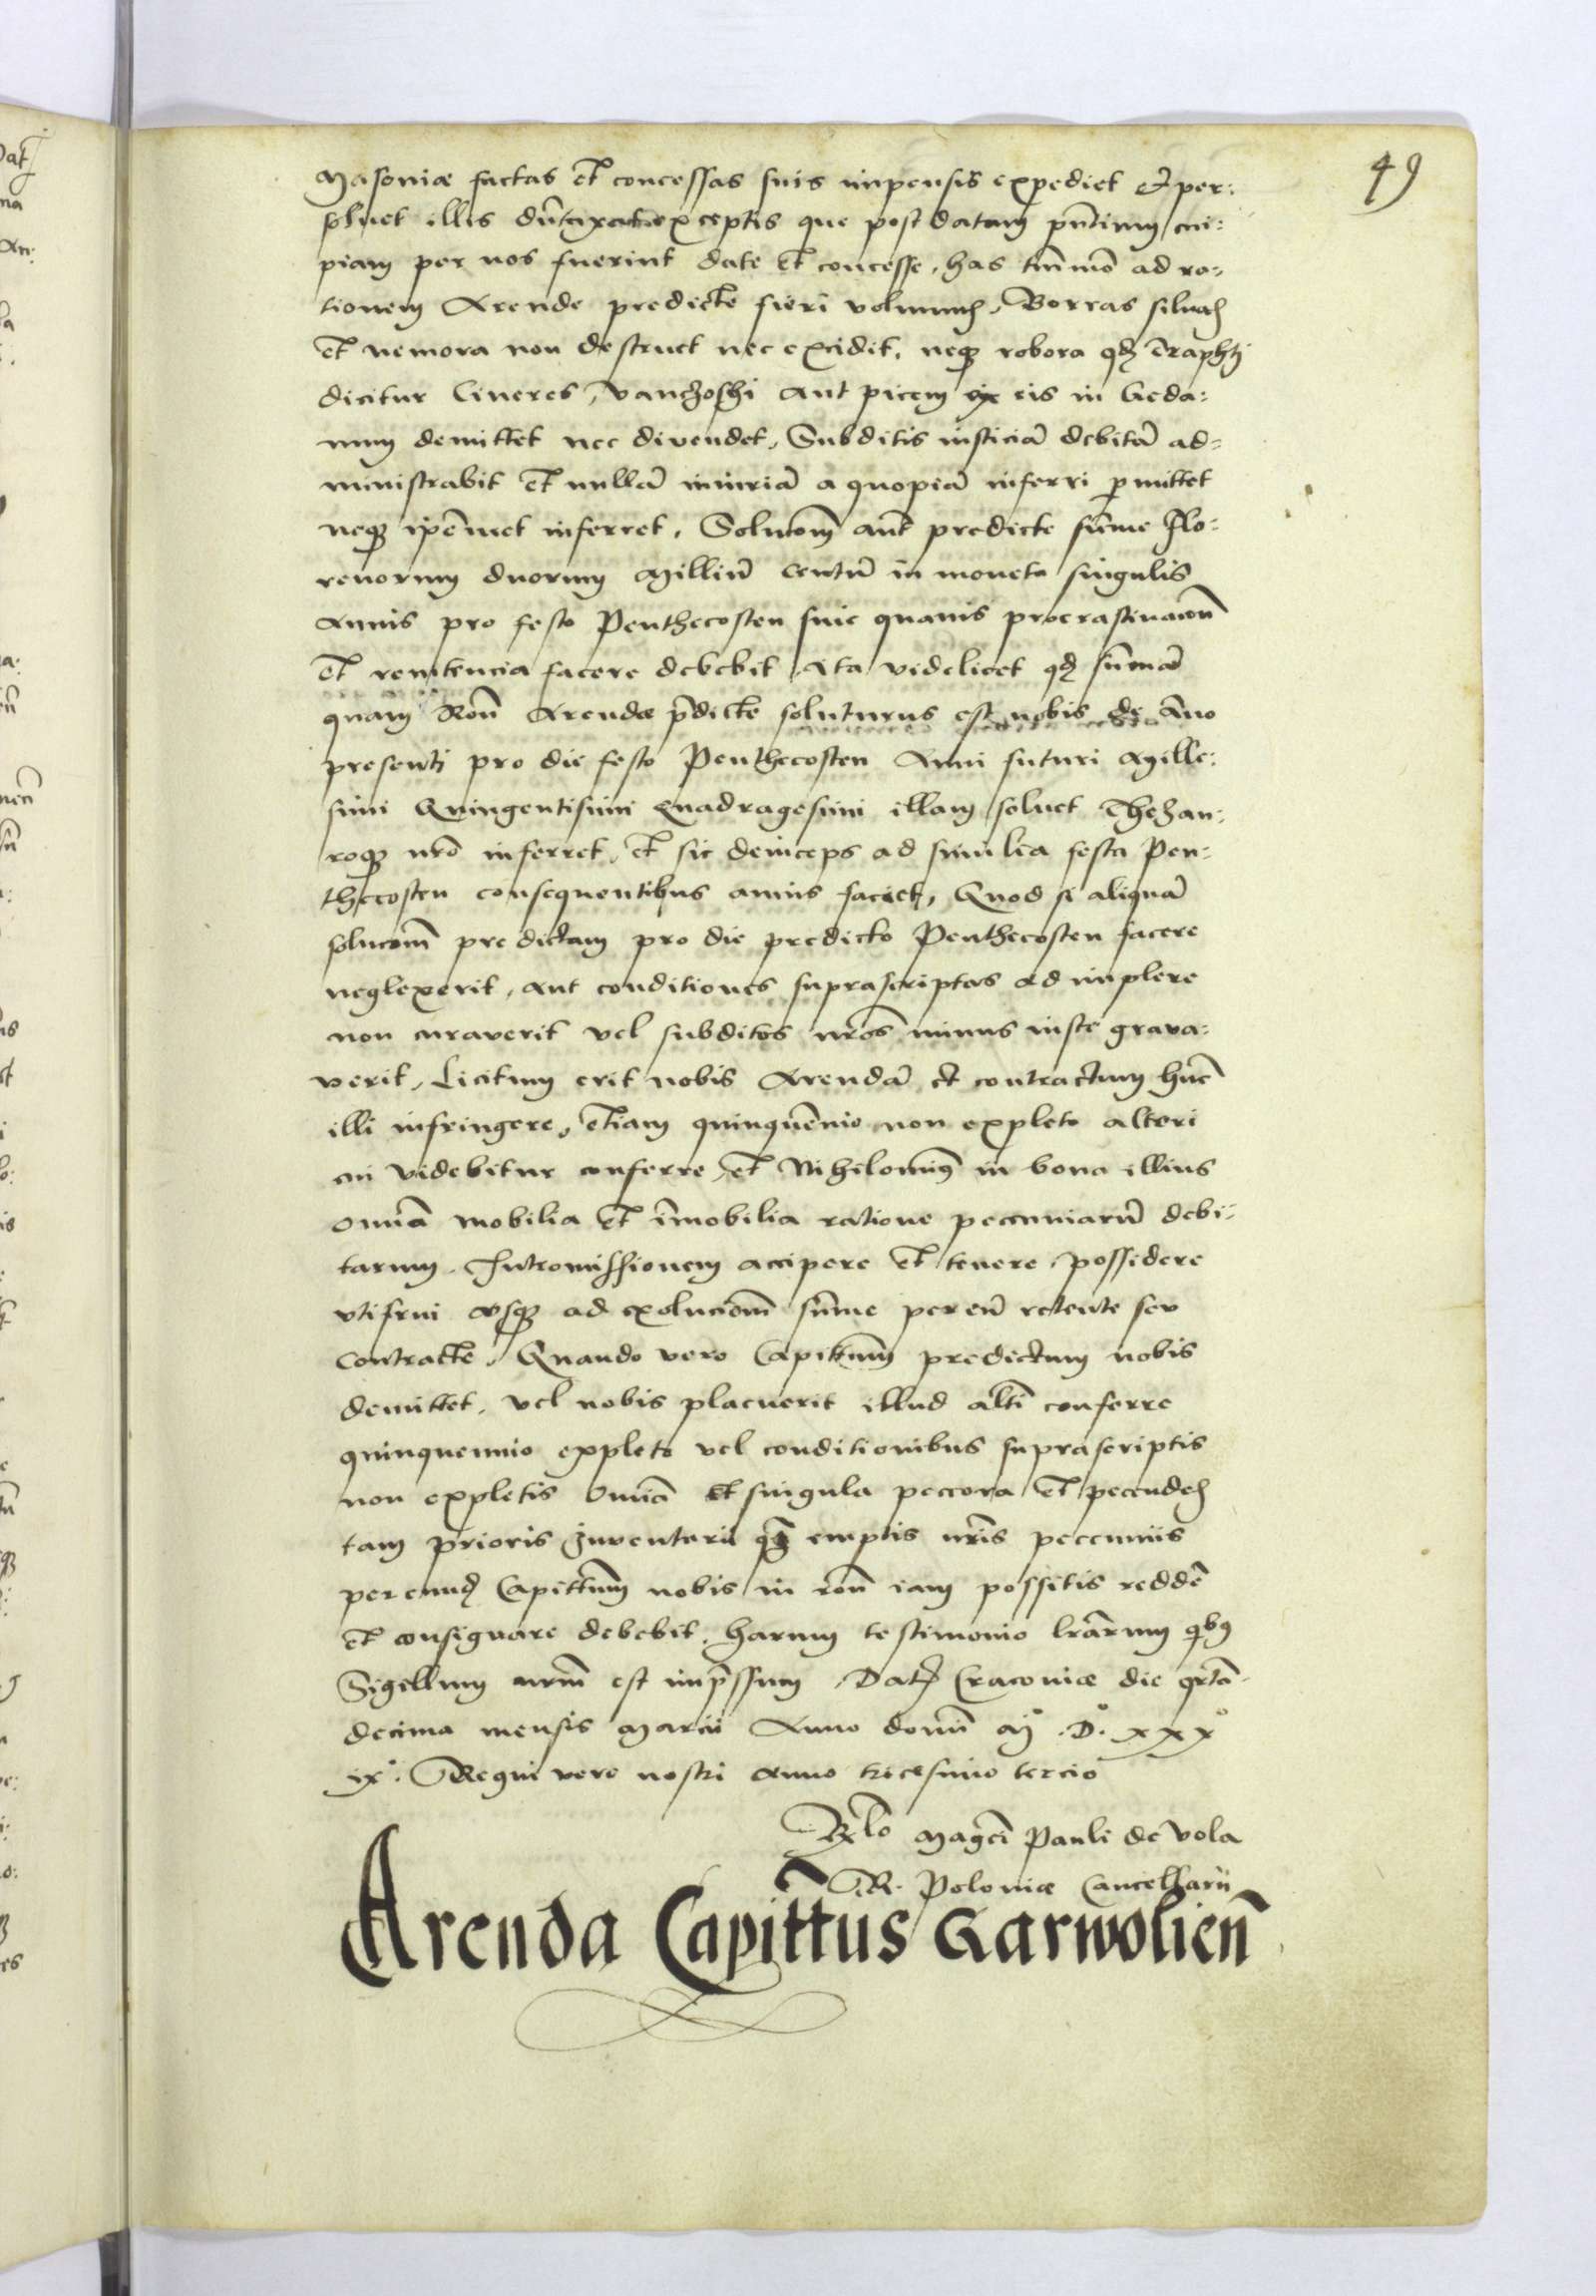 49
Masoniæ factas et concessas suis impensis expediet et per:
soluet illis dūtaxat exceptis que post datam pñtium cui:
piam per nos fuerint date et concesse, has tm̄mō ad ra:
tionem Arende predicte fieri volumus, Borras siluas
et nemora non destruet nec excidit, neqȝ robora qd̄ traphti
dicitur Cineres, vanczoschi aut picem ex eis in Geda:
num demittet nec divendet, Subditis iusticiā debitā ad:
ministrabit et nullā iniuriā a quopiā inferri p̱mittet
neqȝ ip̄emet inferret. Solucōm aūt predicte sūme Flo:
renorum duorum Milliū Centū in moneta singulis
Annis pro festo Penthecosten sine quauis procrastinacōn
et renitencia facere debebit Ita videlicet qd̄ sūmā
quam Rōn Arendæ p̄dicte soluturus est nobis de Año
presenti pro die festo Penthecosten Anni futuri Mille:
simi Quingentisimi Quadragesimi illam soluet Thezau:
roqȝ nr̄o inferret, et sic deinceps ad similia festa Pen:
thecosten consequentibus annis faciet, Quod si aliquā
solucōm predictam pro die predicto Penthecosten facere
neglexerit, aut conditiones suprascriptas ad implere
non curaverit vel subditos nr̄os minus iuste grava:
verit, Licitum erit nobis Arendā et contractum hūc
illi infringere, etiam quinquēnio non expleto alteri
cui videbitur conferre, et Nihilominꝰ in bona illius
omniā mobilia et īmobilia ratione pecuniarū debi:
tarum Intromissionem accipere et tenere, possidere
vtifrui vsqȝ ad exolucōm sūme per eū retente seu
contracte, Quando vero Capittn̄m predictum nobis
demittet, vel nobis placuerit illud alt̄i conferre
quinquennio expleto vel conditionibus suprascriptis
non expletis Omniā et singula peccora et pecudes
tam prioris Inventarii qꝫ emptis nr̄is peccuniis
per eundꝫ Capittn̄m nobis in rōn iam possitis reddē
et consignare debebit, harum testimonio lr̄arum qibꝰ
Sigillum nr̄m est imp̄ssum, Datꝫ Cracoviæ die qrtā
decima mensis Marcii Anno domī Mº. Dº. xxxº
ixº. Regni vero nostri Anno tricesimo tercio
Rlō Magci Pauli de Vola
R. Poloniæ Cancellarii
Arenda Capittn̄us Garwolien̄